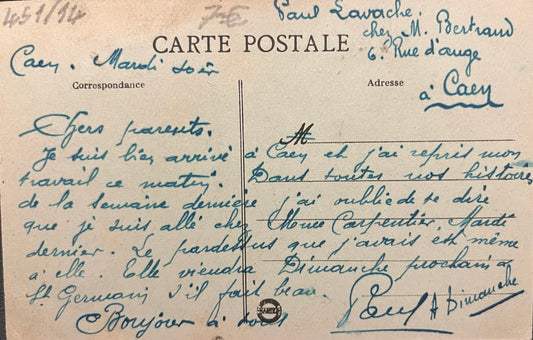 451/14
7€
Paul Lavache.
chez M. Bertrand
6. Rue d'auge
à Caen
CARTE POSTALE
Correspondance
Adresse
Caen. Mardi soir
Chers parents.
M
Je suis bien arrivé à Caen et j'ai repris mon
travail ce matin. Dans toutes nos histoires
de la semaine dernière j'ai oublié de te dire
que je suis allé chez Mmee Carpentier, Mardi
dernier. Le pardessus que j'avais est même
à elle. Elle viendra Dimanche prochain à
St Germain s'il fait beau.
Bonjour à tous
Paul
A Dimanche